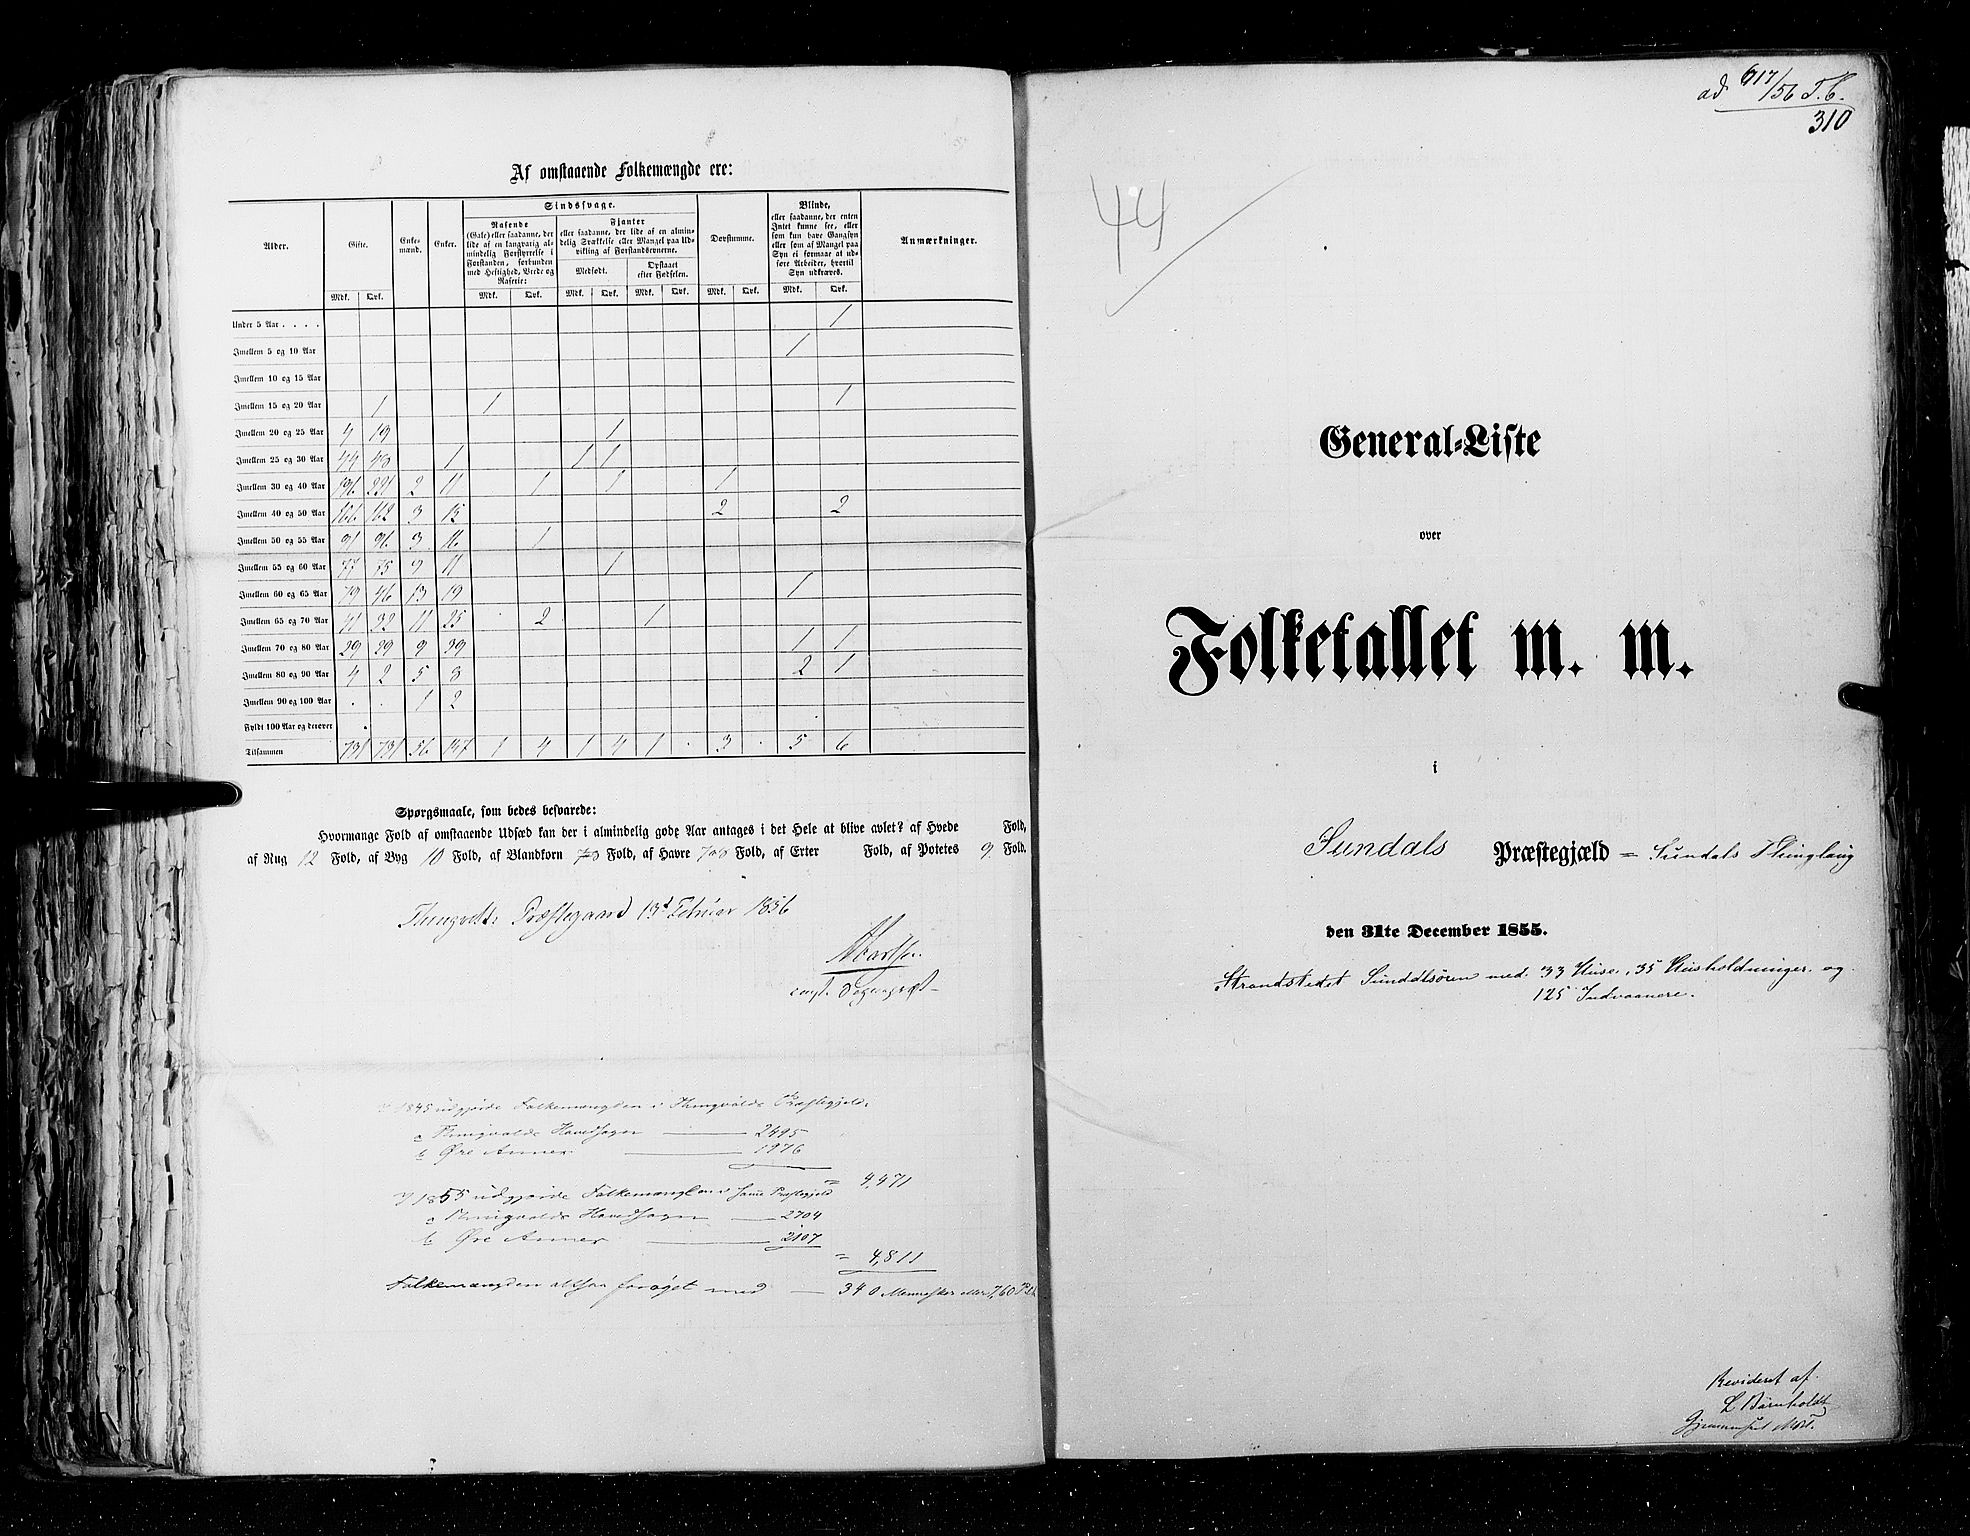 Af omstaaende Folkemængde ere:
Alder.
Gifte.
Enke-
mænd.
Enker.
Sindssvage.
Rasende
(Gale) eller saadanne, der
lide af en langvarig al-
mindelig Forstyrrelse i
Forstanden, forbunden
med Heftighed, Vrede og
Raserie:
Fjanter
eller saadanne, der lide af en almin-
delig Svækkelse eller Mangel paa Ud-
vikling af Forstandsevnerne.
Medfødt.
Opstaaet
efter Fødselen.
Døvstumme.
Blinde,
eller saadanne, der enten
Intet kunne see, eller
som kun have Gangsyn
eller som af Mangel paa
Syn ei formaae at ud-
føre Arbeider, hvortil
Syn udkræves.
Anmærkninger.
Mdk. Qvk. Mdk. Qvk. Mdk. Qvk. Mdk. Qvk. Mdk. Qvk. Mdk. Qvk.
Under 5 Aar . . . . 1
Imellem 5 og 10 Aar 1
Imellem 10 og 15 Aar
Imellem 15 og 20 Aar 1 1 1
Imellem 20 og 25 Aar 4 19 1
Imellem 25 og 30 Aar 44 48 1 1 1
Imellem 30 og 40 Aar 196 221 2 11 1 1 1
Imellem 40 og 50 Aar 166 162 3 15 2 2
Imellem 50 og 55 Aar 91 96 3 16 1
Imellem 55 og 60 Aar 77 75 9 11 1
Imellem 60 og 65 Aar 79 46 13 19 1
Imellem 65 og 70 Aar 41 32 11 25 2 1
Imellem 70 og 80 Aar 29 29 9 39 1 1
Imellem 80 og 90 Aar 4 2 5 8 2 1
Imellem 90 og 100 Aar . . 1 2
Fyldt 100 Aar og derover
Tilsammen 731 731 56 147 1 4 1 4 1 . 3 . 5 6
Spørgsmaale, som bedes besvarede:
Hvormange Fold af omstaaende Udsæd kan der i almindelig gode Aar antages i det Hele at blive avlet? af Hvede Fold,
af Rug 12 Fold, af Byg 10 Fold, af Blandkorn 7-8 Fold, af Havre 7-8 Fold, af Erter Fold, af Potetes 9 Fold.
Thingvolds Præstegaard 13d Februar 1856
const. Sognepræst
I 1845 udgjorde Folkemængden i Thingvolds Præstegjeld.
a Thingvolds Hovedsogn 2495
b Øre Annex 1976
= 4,471
I 1855 udgjorde Folkemængden i samme Præstegjeld
a Thingvolds Hovedsogn 2704
b Øre Annex 2107
= 4,811
Folkemængden altsaa forøget med 340 Mennesker eller 7,60 Pct.
ad 617/56 T.C.
310
44
General-Liste
over
Folketallet m. m.
i
Sundals Præstegjæld = Sundals Thinglaug
den 31te December 1855.
Strandstedet Sunddlsören med 33 Huse, 35 Huusholdninger og
125 Indvaanere.
Revideret af
L Barnholdt